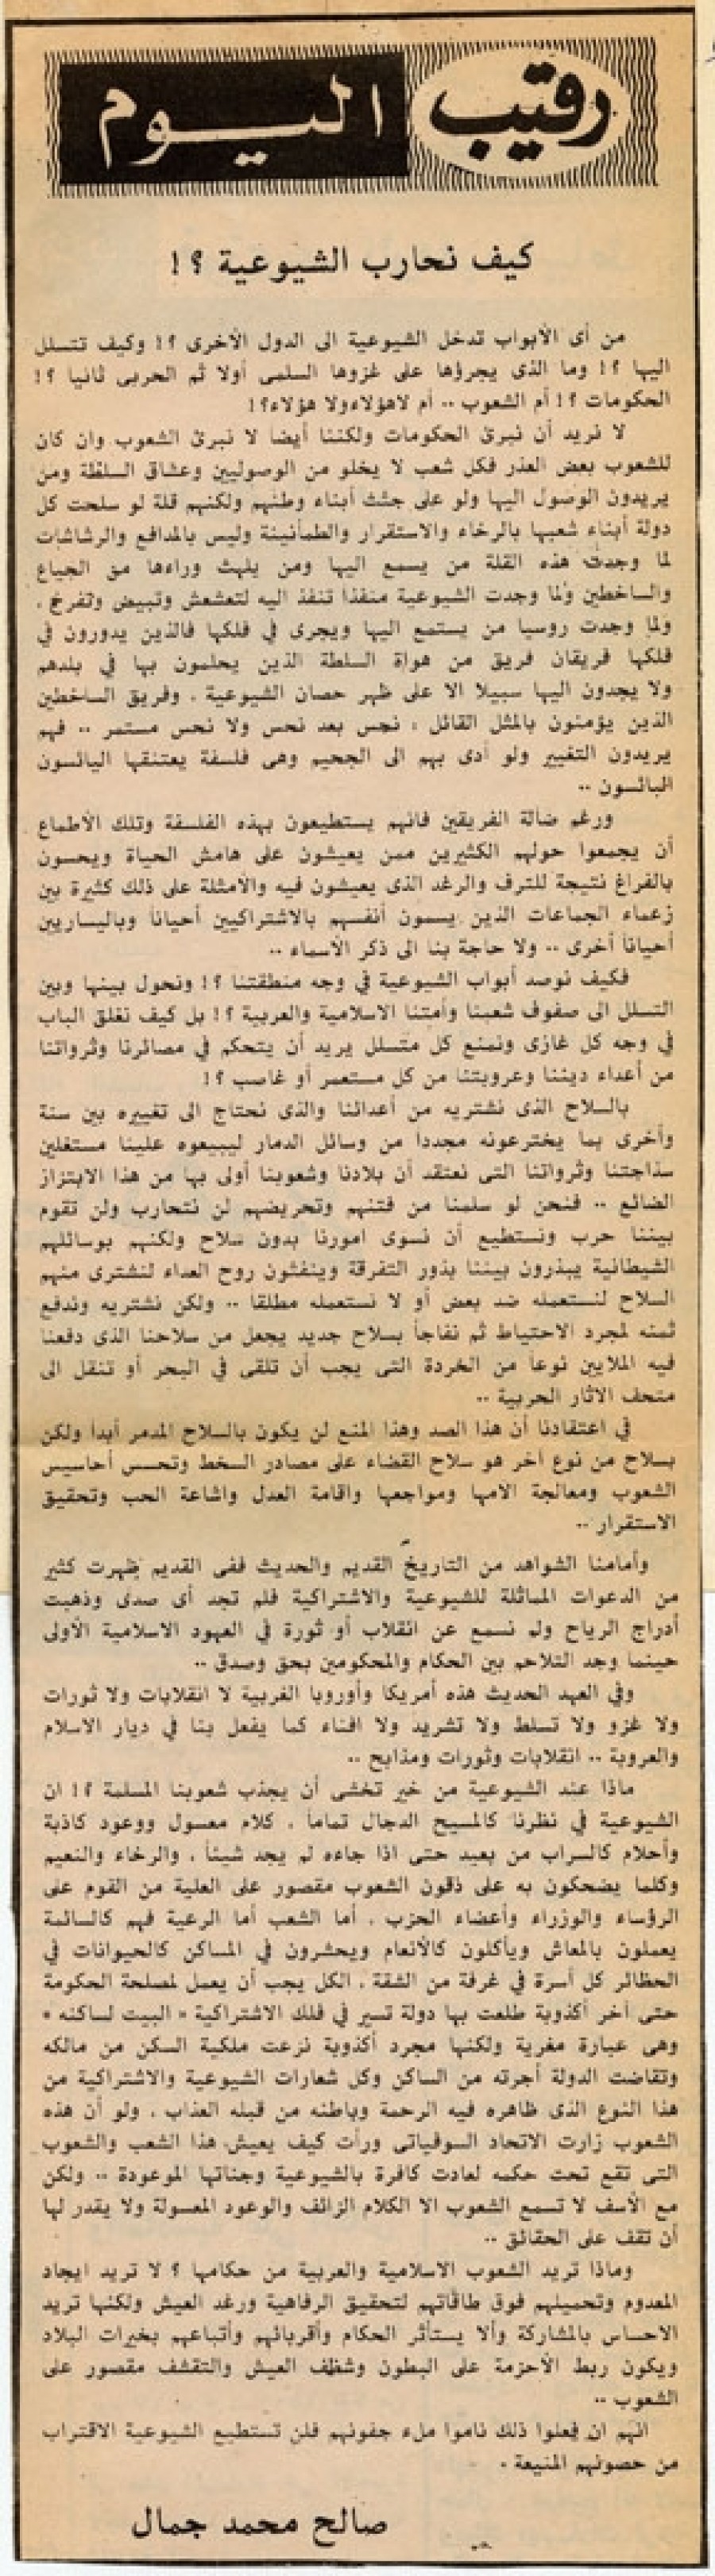 رقيب اليوم
كيف نحارب الشيوعية ؟ !
من أى الأبواب تدخل الشيوعية الى الدول الأخرى ؟! وكيف تتسلل
اليها ؟! وما الذى يجرؤها على غزوها السلمى أولا ثم الحربى ثانيا ؟!
الحكومات ؟! أم الشعوب .. أم لاهؤلاءولا هؤلاء؟!
لا نريد أن نبرئ الحكومات ولكننا أيضا لا نبرئ الشعوب وان كان
للشعوب بعض العذر فكل شعب لا يخلو من الوصوليين وعشاق السلطة ومن
يريدون الوصول اليها ولو على جثث أبناء وطنهم ولكنهم قلة لو سلحت كل
دولة أبناء شعبها بالرخاء والاستقرار والطمأنينة وليس بالمدافع والرشاشات
لما وجدت هذه القلة من يسمع اليها ومن يلهث وراءها من الجياع
والساخطين ولما وجدت الشيوعية منفذا تنفذ اليه لتعشعش وتبيض وتفرخ .
ولما وجدت روسيا من يستمع اليها ويجرى في فلكها فالذين يدورون في
فلكها فريقان فريق من هواة السلطة الذين يحلمون بها في بلدهم
ولا يجدون اليها سبيلا الا على ظهر حصان الشيوعية . وفريق الساخطين
الذين يؤمنون بالمثل القائل : نجس بعد نحس ولا نحس مستمر .. فهم
يريدون التغيير ولو أدى بهم الى الجحيم وهى فلسفة يعتنقها اليائسون
البائسون ..
ورغم ضالة الفريقين فانهم يستطيعون بهذه الفلسفة وتلك الأطماع
أن يجمعوا حولهم الكثيرين ممن يعيشون على هامش الحياة ويحسون
بالفراغ نتيجة للترف والرغد الذى يعيشون فيه والأمثلة على ذلك كثيرة بين
زعماء الجماعات الذين يسمون أنفسهم بالاشتراكيين أحيانا وباليساريين
أحيانا أخرى .. ولا حاجة بنا الى ذكر الأسماء ..
فكيف نوصد أبواب الشيوعية في وجه منطقتنا ؟! ونحول بينها وبين
التسلل الى صفوف شعبنا وأمتنا الاسلامية والعربية ؟! بل كيف نغلق الباب
في وجه كل غازى ونمنع كل متسلل يريد أن يتحكم في مصائرنا وثرواتنا
من أعداء ديننا وعروبتنا من كل مستعمر أو غاصب ؟!
بالسلاح الذى نشتريه من أعدائنا والذى نحتاج الى تغييره بين سنة
وأخرى بما يخترعونه مجددا من وسائل الدمار ليبيعوه علينا مستغلين
سذاجتنا وثرواتنا التى نعتقد أن بلادنا وشعوبنا أولى بها من هذا الابتزاز
الضائع .. فنحن لو سلمنا من فتنهم وتحريضهم لن نتحارب ولن تقوم
بيننا حرب ونستطيع أن نسوى امورنا بدون سلاح ولكنهم بوسائلهم
الشيطانية يبذرون بيننا بذور التفرقة وينفثون روح العداء لنشترى منهم
السلاح لنستعمله ضد بعض أو لا نستعمله مطلقا .. ولكن نشتريه وندفع
ثمنه لمجرد الاحتياط ثم نفاجأ بسلاح جديد يجعل من سلاحنا الذى دفعنا
فيه الملايين نوعا من الخردة التى يجب أن تلقى في البحر أو تنقل الى
متحف الاثار الحربية ..
في اعتقادنا أن هذا الصد وهذا المنع لن يكون بالسلاح المدمر أبدا ولكن
بسلاح من نوع أخر هو سلاح القضاء على مصادر السخط وتحسس أحاسيس
الشعوب ومعالجة الامها ومواجعها واقامة العدل واشاعة الحب وتحقيق
الاستقرار ..
وأمامنا الشواهد من التاريخ القديم والحديث ففى القديم ظهرت كثير
من الدعوات المماثلة للشيوعية والاشتراكية فلم تجد أى صدى وذهبت
أدراج الرياح ولم نسمع عن انقلاب أو ثورة في العهود الاسلامية الأولى
حينما وجد التلاحم بين الحكام والمحكومين بحق وصدق ..
وفي العهد الحديث هذه أمريكا وأوروبا الغربية لا انقلابات ولا ثورات
ولا غزو ولا تسلط ولا تشريد ولا افناء كما يفعل بنا في ديار الاسلام
والعروبة .. انقلابات وثورات ومذابح ..
ماذا عند الشيوعية من خير تخشى أن يجذب شعوبنا المسلمة ؟! ان
الشيوعية في نظرنا كالمسيح الدجال تماما . كلام معسول ووعود كاذبة
وأحلام كالسراب من بعيد حتى اذا جاءه لم يجد شيئا . والرخاء والنعيم
وكلما يضحكون به على ذقون الشعوب مقصور على العلية من القوم على
الرؤساء والوزراء وأعضاء الحزب . أما الشعب أما الرعية فهم كالسائمة
يعملون بالمعاش ويأكلون كالأنعام ويحشرون في المساكن كالحيوانات في
الحظائر كل أسرة في غرفة من الشقة . الكل يجب أن يعمل لمصلحة الحكومة
حتى أخر أكذوبة طلعت بها دولة تسير في فلك الاشتراكية « البيت لساكنه »
وهى عبارة مغرية ولكنها مجرد أكذوبة نزعت ملكية السكن من مالكه
وتقاضت الدولة أجرته من الساكن وكل شعارات الشيوعية والاشتراكية من
هذا النوع الذى ظاهره فيه الرحمة وباطنه من قبله العذاب . ولو أن هذه
الشعوب زارت الاتحاد السوفياتى ورأت كيف يعيش هذا الشعب والشعوب
التى تقع تحت حكمه لعادت كافرة بالشيوعية وجناتها الموعودة .. ولكن
مع الأسف لا تسمع الشعوب الا الكلام الزائف والوعود المعسولة ولا يقدر لها
أن تقف على الحقائق ..
وماذا تريد الشعوب الاسلامية والعربية من حكامها ؟ لا تريد ايجاد
المعدوم وتحميلهم فوق طاقاتهم لتحقيق الرفاهية ورغد العيش ولكنها تريد
الاحساس بالمشاركة وألا يستأثر الحكام وأقربائهم وأتباعهم بخيرات البلاد
ويكون ربط الأحزمة على البطون وشظف العيش والتقشف مقصور على
الشعوب ..
انهم ان فعلوا ذلك ناموا ملء جفونهم فلن تستطيع الشيوعية الاقتراب
من حصونهم المنيعة .
صالح محمد جمال